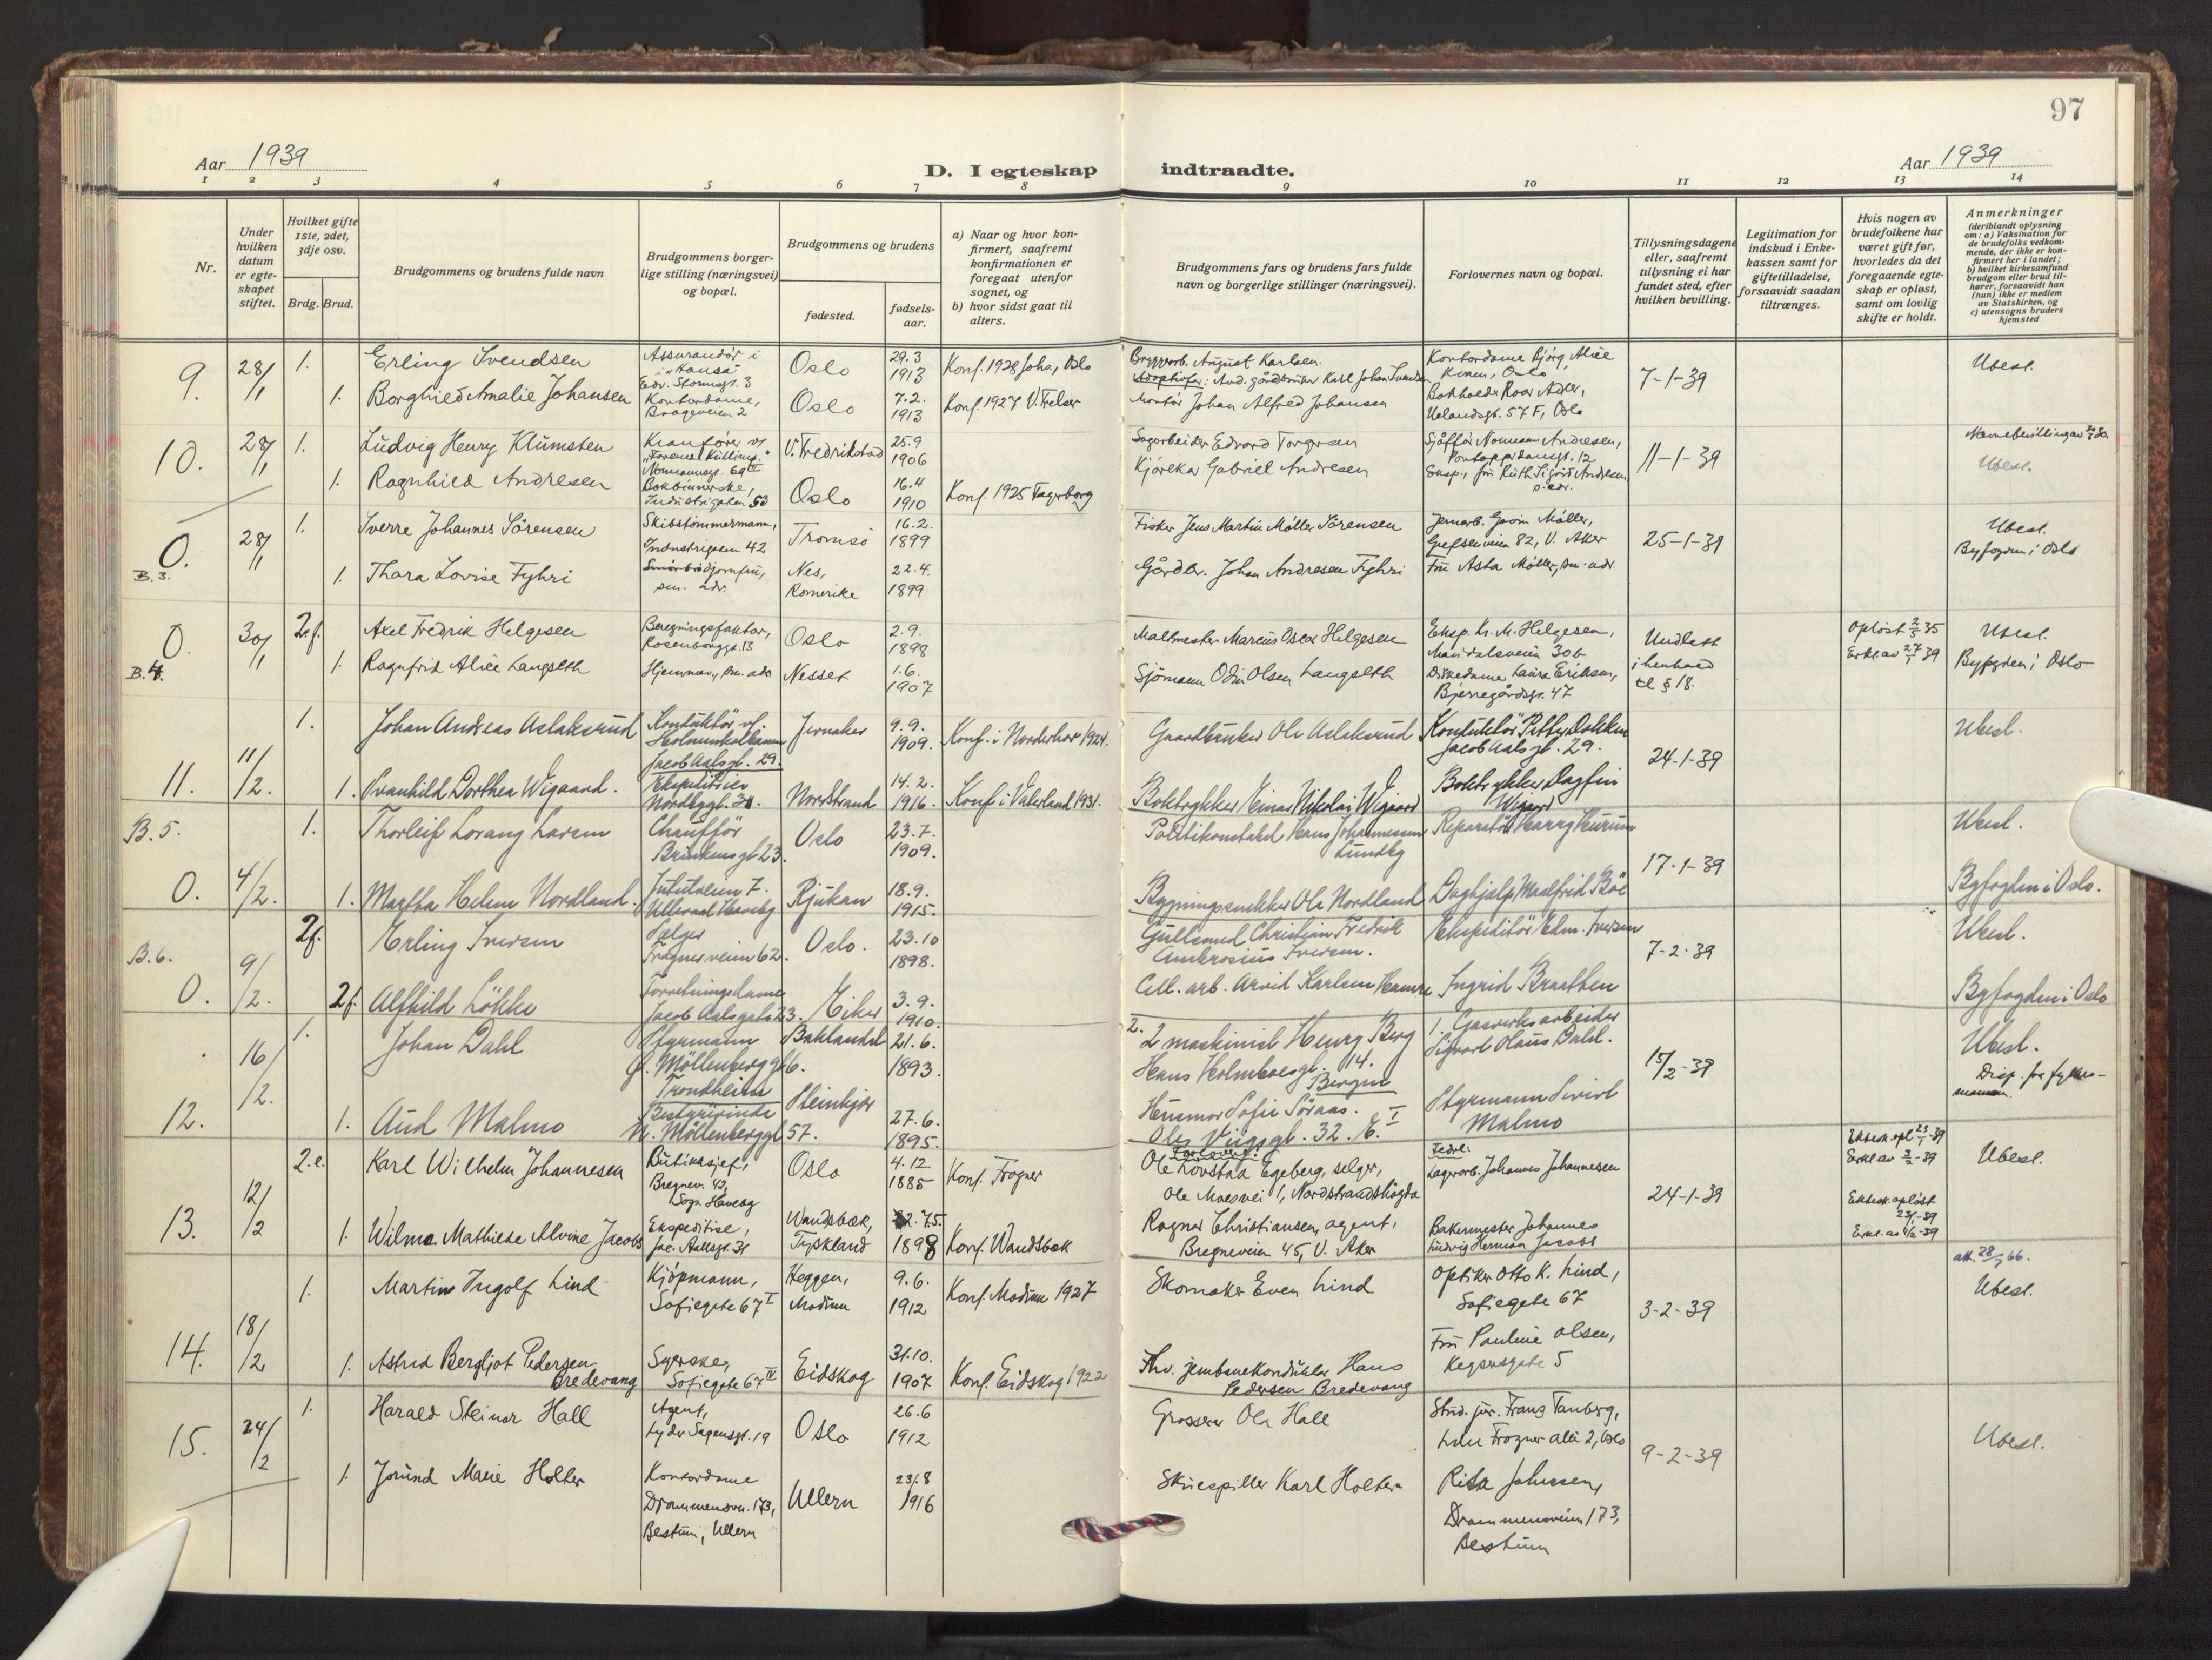 97
Aar 1939
D. I egteskap indtraadte.
Aar 1939
1 2 3 4 5 6 7 8 9 10 11 12 13 14
Nr.
Under hvilken datum er egteskapet stiftet.
Hvilket gifte 1ste, 2det, 3dje osv.
Brdg. Brud.
Brudgommens og brudens fulde navn
Brudgommens borgerlige stilling (næringsvei) og bopæl.
Brudgommens og brudens
fødested.
fødselsaar.
a) Naar og hvor konfirmert, saafremt konfirmationen er foregaat utenfor sognet, og
b) hvor sidst gaat til alters.
Brudgommens fars og brudens fars fulde navn og borgerlige stillinger (næringsvei).
Forlovernes navn og bopæl.
Tillysningsdagene eller, saafremt tillysning ei har fundet sted, efter hvilken bevilling.
Legitimation for indskud i Enkekassen samt for giftetilladelse, forsaavidt saadan tiltrænges.
Hvis nogen av brudefolkene har været gift før, hvorledes da det foregaaende egteskap er opløst, samt om lovlig skifte er holdt.
Anmerkninger (deriblandt oplysning om: a) Vaksination for de brudefolks vedkommende, der ikke er konfirmert her i landet; b) hvilket kirkesamfund brudgom eller brud tilhører, forsaavidt han (hun) ikke er medlem av Statskirken, og c) utensogns bruders hjemsted
9. 28/1 1. Erling Svendsen
Assurandør i "Hansa" Edv. Stormsgt. 3
Oslo 29.3 1913 Konf. 1928 Joha, Oslo
Bryggarb. August Karlsen.
Adoptivfar: And. gårdbruker Karl Johan Svendsen
Kontordame Bjørg Alice Kvam, Oslo
7-1-39
Ubesl.
1. Borghild Amalie Johansen
Kontordame, Brageveien 2
Oslo 7.2. 1913 Konf. 1927 V. Frelser
Montør Johan Alfred Johansen
Bokholder Roar Adler, Uelandsgt. 57 F, Oslo
10. 28/1 1. Ludvig Henry Klumsten
Kranfører v/ Normannsgt. 69 III
V. Fredrikstad 25.9 1906
Sagarbeider Edvard Torgersen
Sjåffør Normann Andresen, Pontoppidansgt. 12
11-1-39
Ubesl.
1. Ragnhild Andresen
Bokbinnerske, Industrigaten 53
Oslo 16.4 1910 Konf. 1925 Fagerborg
Kjørekar Gabriel Andresen
Eksp., fru Ruth Sigrid Andresen s. adr.
0. B. 3. 28/1 1. Sverre Johannes Sørensen
Skibstømmermann, Industrigaten 42
Tromsø 16.2. 1899
Fisker Jens Martin Møller Sørensen
Jernarb. Møller, Grefsenveien 82, V. Aker
25-1-39
Ubesl. Byfogden i Oslo
1. Thora Lovise Fyhri
Smørbrødjomfru, sm. adr.
Nes, Romerike 22.4. 1899
Gårdbr. Johan Andresen Fyhri
Fru Asta Møller, sm. adr.
0. B. 4. 30/1 2.f. Axel Fredrik Helgesen
Beregningsfaktor, Rosenborggt. 13
Oslo 2.9. 1898
Maltmester Marcus Oscar Helgesen
Eksp. Kr. M. Helgesen, Maridalsveien 306
Undlatt i henhold til § 18.
Opløst 2/5 35 Erkl. av 27/1 39
Ubesl. Byfogden i Oslo
1. Ragnfrid Alice Langseth
Hjemmev., sm. adr
Nesset 1.6. 1907
Sjømann Odin Olsen Langseth
Diskedame Laura Eriksen, Bjerregårdsgt. 47
11. 11/2. 1. Johan Andreas Aslaksrud
Konduktør v/ Holmenkolbanen Jacob Aalsgt. 29.
Jevnaker 9.9. 1909. Konf. i Norderhov 1924.
Gaardbruker Ole Aslaksrud
Konduktør Petter Dokken Jacob Aalsgt. 29.
24-1-39
Ubesl.
1. Svanhild Dorthea Wigaard.
Ekspeditrise Nordbyggt. 34.
Nordstrand 14.2. 1916. Konf. i Vaterland 1931.
Boktrykker Einar Nikolai Wigaard
Boktrykker Dagfin Wigaard
B. 5. 0. 4/2. 1. Thorleif Lorang Larsen
Chauffør Brinkensgt. 23.
Oslo 23.7. 1909.
Politikonstabel Hans Johannessen Lundby
Reparatør Harry Hurum
17-1-39
Ubesl.
1. Magtha Helene Nordland.
Jutulveien 7. Ullevaal Haveby
Rjukan 18.9. 1915.
Bygningssnekker Ole Nordland
Daghjelp Maalfrid Bøe
Byfogden i Oslo.
B. 6. 0. 9/2. 2f. Erling Iversen
Selger Frognerveien 62.
Oslo. 23.10 1898.
Gullsmed Christian Fredrik Ambrosius Iversen.
Ekspeditør Edm. Iversen
7-2-39
Ubesl.
2f. Alfhild Løkke
Forretningsdame Jacob Aalsgate 23.
Eiker 3.9. 1910.
Cell. arb. Arvid Karlsen Hamre
Ingrid Braathen
Byfogden i Oslo
12. 16/2. 1. Johan Dahl
Styrmann Ø. Møllenberggt 6. Trondheim
Baklandet 21.6. 1893.
2. 2 maskinist Henry Berg Hans Holmboesgt. 14. Bergen
1. Gasverksarbeider Sigvart Olaus Dahl.
15/2-39
Ubesl. Disp. fra fylkesmannen.
1. Aud Malmo
Bestyrerinde N. Møllenberggt 57.
Steinkjer 27.6. 1895.
Husmor Sofie Søraas. Oles Vigsgt. 32. I
Styrmann Sivert Malmo
13. 12/2 2.e. Karl Wilhelm Johannesen
Butikksjef, Bregnev. 43, Sogn Haveby
Oslo 4.12 1885 Konf. Frogner
Forlovere: Ole Lovstad Egeberg, selger, Ole Moesvei 1, Nordstrandshøgda
Fedre: Lagerarb. Johannes Johannesen
24-1-39
Ektesk. opl 23/1-39 Erkl av 3/2-39
Ubesl.
1. Wilma Mathilde Alvine Jacobs
Ekspeditrise, Jac. Aallsgt. 31
Wandsbæk, Tyskland 1898 Konf. Wandsbæk
Ragnar Christiansen, agent, Bregneveien 45, V. Aker
Bakermester Johannes Ludvig Herman Jacobs
Ektesk. opløst 23/1-39 Erkl. av 4/2-39
14. 18/2 1. Martin Ingolf Lind
Kjøpmann, Sofiegate 67 I
Heggen, Modum 9.6. 1912 Konf. Modum 1927
Skomaker Even Lind
Optiker Otto K. Lind, Sofiegate 67
3-2-39
Ubesl.
1. Astrid Bergljot Pedersen Bredevang
Syerske, Sofiegate 67 IV
Eidskog 31.10. 1907 Konf. Eidskog 1922
Fhv. jernbanekonduktør Hans Pedersen Bredevang
Fru Pauline Olsen, Keysersgate 5
15. 24/2 1. Harald Steinar Hall
Agent, Lyder Sagensgt. 19
Oslo 26.6 1912
Grosserer Ole Hall
Stud. jur. Franz Tanberg, Lille Frogner allé 2, Oslo
9-2-39
Ubesl.
1. Jorund Marie Holter
Kontordame Drammensvn. 173, Bestum, Ullern
Ullern 23.8 1916
Skuespiller Karl Holter
Rita Johnssen, Drammensveien 173, Bestum